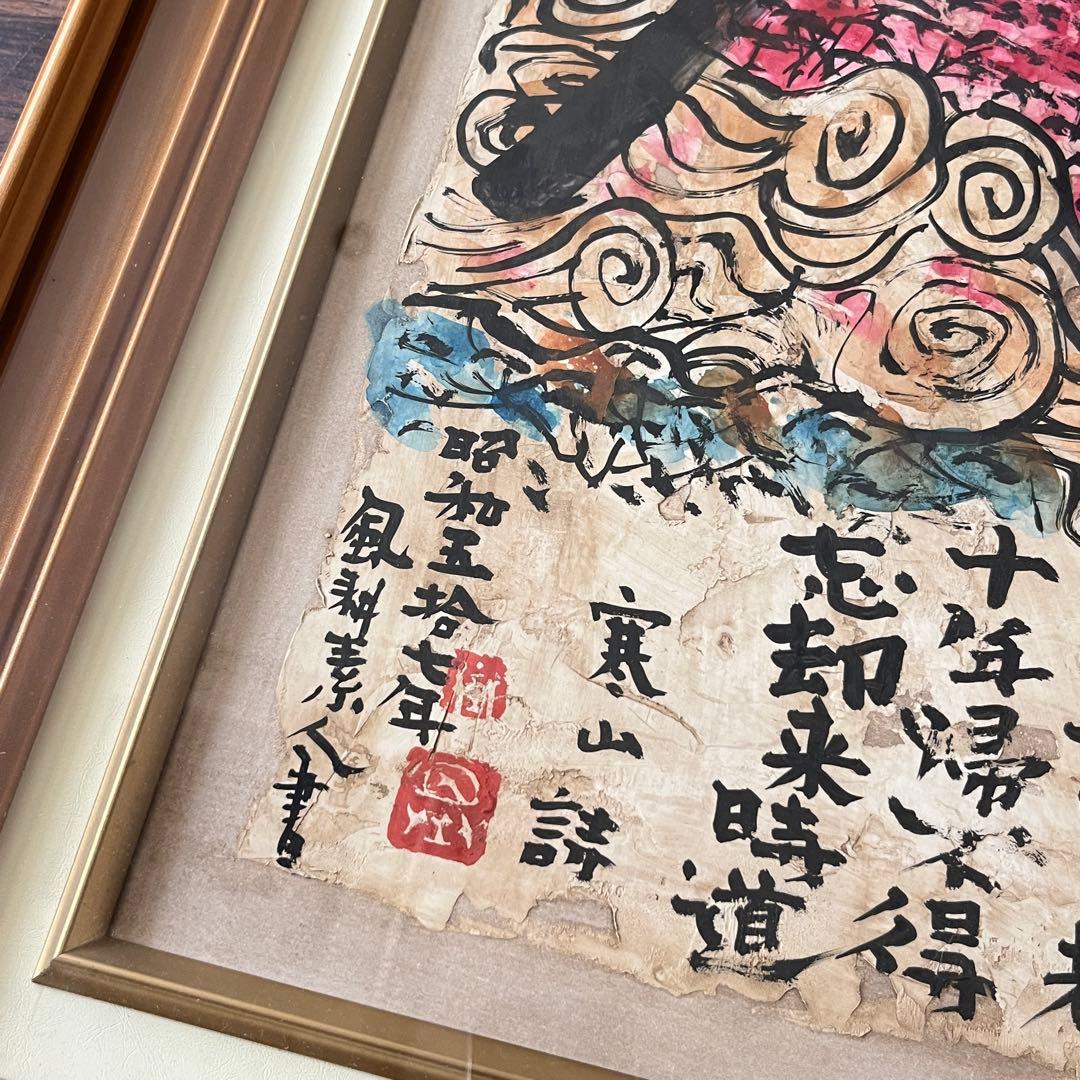 十年歸不得
忘却来時道
寒山詩
昭和五拾七年
素人書